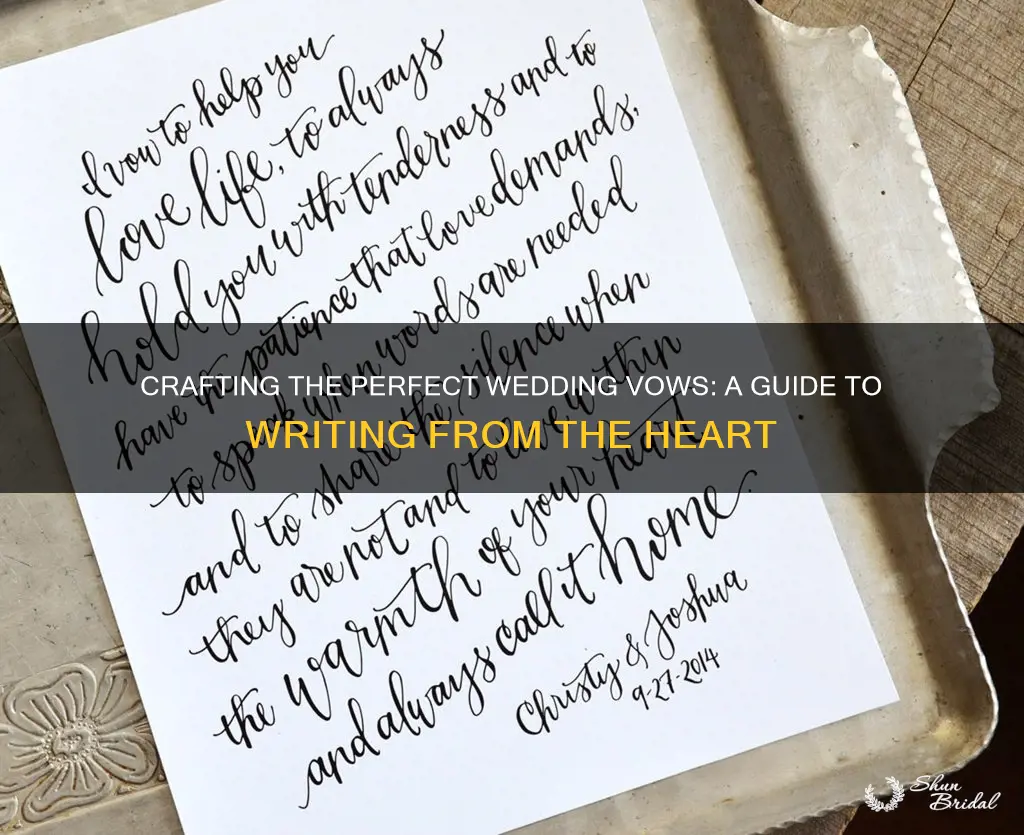 I vow to help you
love life, to always
hold you with tenderness and to
have the patience that love demands,
to speak when words are needed
and to share the silence when
they are not and to live within
the warmth of your heart
and always call it home.
Christy & Joshua
9-27-2014
CRAFTING THE PERFECT WEDDING VOWS: A GUIDE TO
WRITING FROM THE HEART
Shun
Bridal